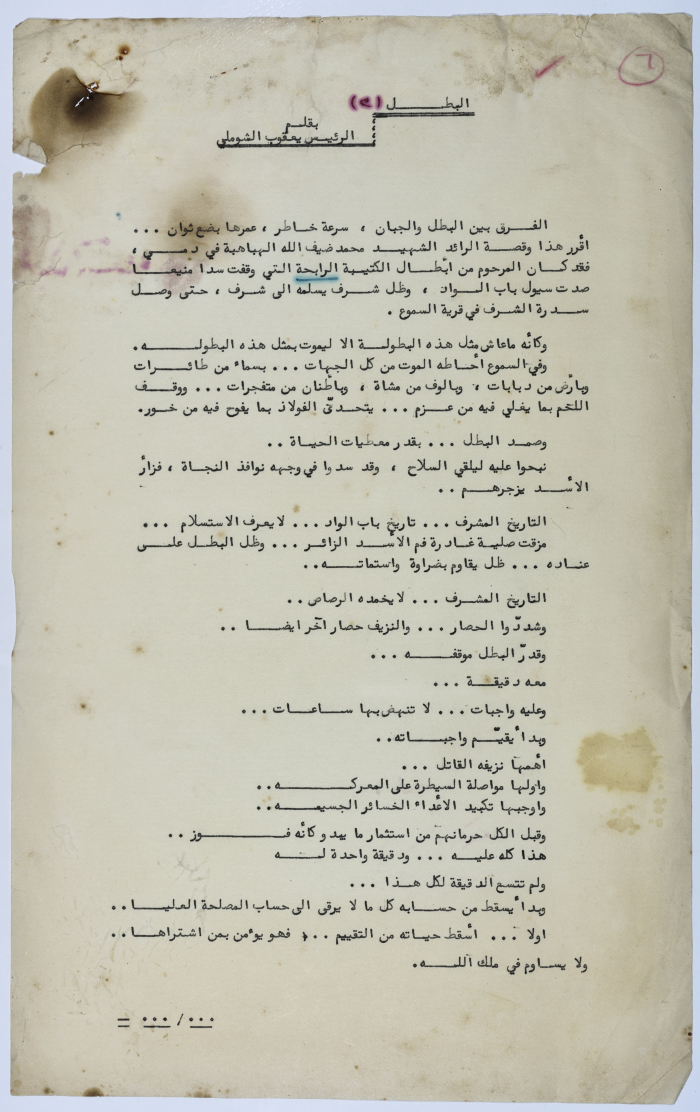 ٦
البطــــــل (٢)
بقلــم
الرئيس يعقوب الشوملي
الفــرق بين البطل والجبان ، سرعة خـاطر ، عمرها بضع ثوان ...
أقرر هذا وقصــة الرائد الشهيــد محمد ضيف الله الهباهبة في دمــي ،
فقد كــان المرحوم من ابطــال الكتيبــة الرابحة التي وقفت سدا منيعــا
صدت سيول باب الــواد ، وظل شــرف يسلمه الى شرف ، حتى وصــل
ســدرة الشرف في قرية السموع .
وكأنه ماعاش مثل هذه البطولــة الا ليموت بمثل هذه البطولـــه.
وفي السموع أحـاطه الموت من كل الجهات ... بسماء من طائــرات
وبأرض من دبابات ، وبالوف من مشاة ، وبأطنان من متفجرات ... ووقــف
اللحم بما يغلي فيه من عــزم ... يتحــدىّ الفولاذ بما يفوح فيه من خور.
وصمــد البطل ... بقدر معطيات الحيــاة ..
نبحوا عليه ليلقي السلاح ، وقد سدوا في وجهه نوافذ النجــاة ، فزأر
الأســـد يزجرهــم ..
التاريخ المشرف ... تاريخ باب الواد ... لا يعرف الاستسلام ...
مزقت صليــة غــادرة فم الأســد الزائــر ... وظل البطل علــى
عنــاده ... ظل يقاوم بضراوة واستماتــه..
التاريخ المشرف ... لا يخمده الرصاص ..
وشددّوا الحصار ... والنزيف حصار آخر ايضــا ..
وقدرّ البطل موقفــــه ...
معه دقيقــة ...
وعليه واجبات ... لا تنهض بها ســاعــات ...
وبدأ يقيّــم واجبــاته..
أهمها نزيفه القاتل ...
واولها مواصلة السيطرة على المعركــــه..
واوجبها تكبيد الأعداء الخسائر الجسيمــــه..
وقبل الكل حرمانهم من استثمار ما يبدو كأنه فــــــوز ..
هذا كله عليــــه ... ودقيقة واحدة لــــه
ولم تتسع الدقيقة لكل هــذا ...
وبدأ يسقط من حســابه كل ما لا يرقى الى حساب المصلحة العليــا ..
اولا ... أسقط حيــاته من التقييم ... فهو يؤمن بمن اشتراهــا ..
ولا يســاوم في ملك اللــــه.
... / ... =